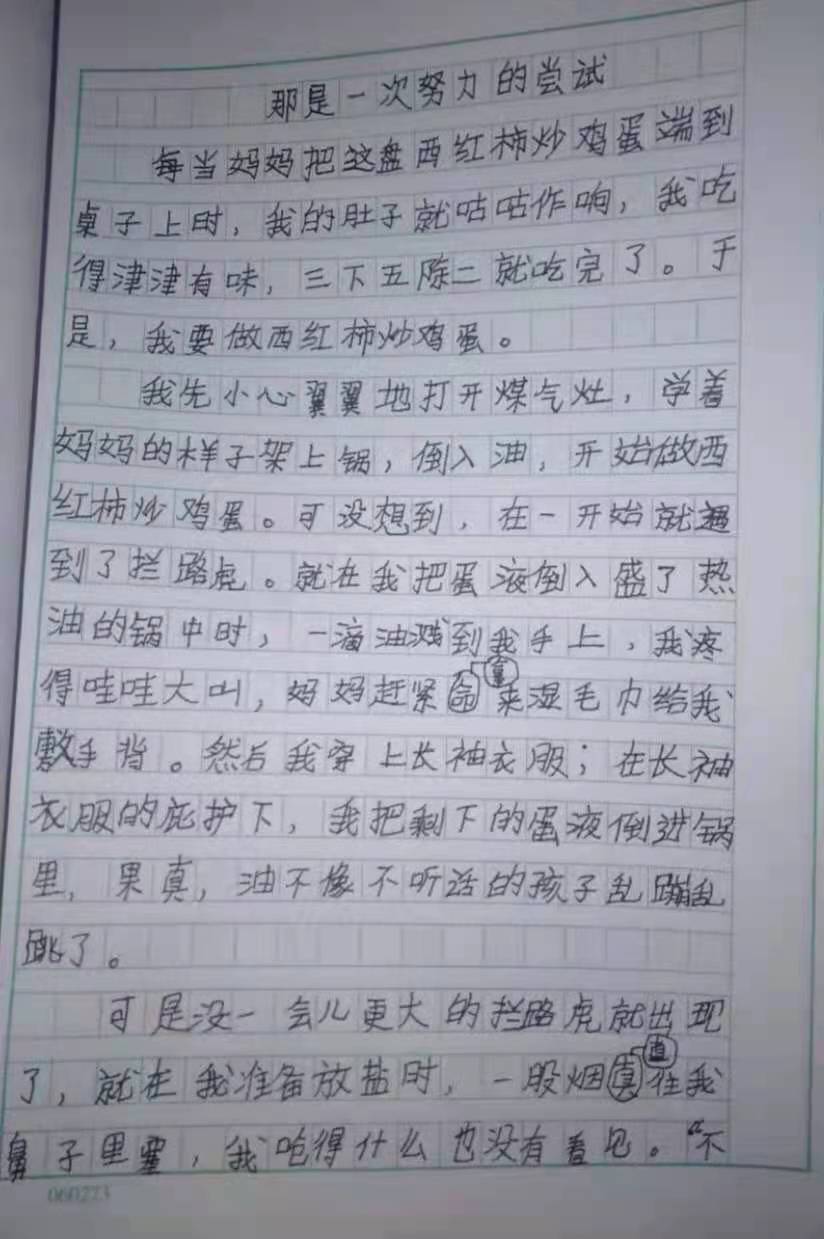 那是一次努力的尝试
每当妈妈把这盘西红柿炒鸡蛋端到
桌子上时，我的肚子就咕咕作响，我吃
得津津有味，三下五除二就吃完了。于
是，我要做西红柿炒鸡蛋。
我先小心翼翼地打开煤气灶，学着
妈妈的样子架上锅，倒入油，开始做西
红柿炒鸡蛋。可没想到，在一开始就遇
到了拦路虎。就在我把蛋液倒入盛了热
油的锅中时，一滴油溅到我手上，我疼
拿
得哇哇大叫，妈妈赶紧命来湿毛巾给我
敷手背。然后我穿上长袖衣服；在长袖
衣服的庇护下，我把剩下的蛋液倒进锅
里，果真，油不像不听话的孩子乱蹦乱
跳了。
可是没一会儿更大的拦路虎就出现
直
了，就在我准备放盐时，一股烟真往我
鼻子里塞，我呛得什么也没有看见。“不
060223